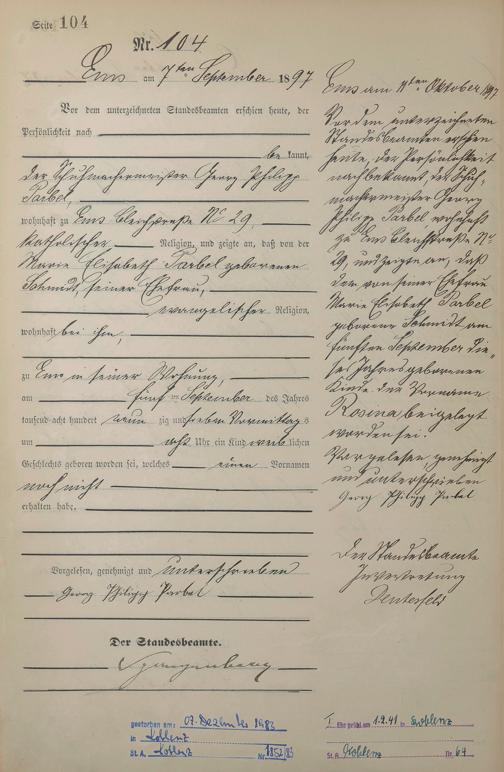 Seite 104
Nr. 104.
Ems am 7ten September 1897
Vor dem unterzeichneten Standesbeamten erschien heute, der
Persönlichkeit nach
bekannt,
der Schuhmachermeister Georg Philipp
Parbel,
wohnhaft zu Ems Bleichstraße No 29,
katholischer Religion, und zeigte an, daß von der
Marie Elisabeth Parbel geborenen
Schmidt, seiner Ehefrau,
evangelischer Religion,
wohnhaft bei ihm,
zu Ems in seiner Wohnung,
am fünften September des Jahres
tausend acht hundert neunzig und sieben Vormittags
um acht Uhr ein Kind weiblichen
Geschlechts geboren worden sei, welches einen Vornamen
noch nicht
erhalten habe.
Vorgelesen, genehmigt und unterschrieben
Georg Philipp Parbel
Der Standesbeamte.
Spangenberg
Ems am ten Oktober 1897
Vor dem unterzeichneten
Standesbeamten erschien
heute, der Persönlichkeit
nach bekannt, der Schuh-
machermeister Georg
Philipp Parbel wohnhaft
zu Ems Bleichstraße No
29, und zeigte an, daß
dem von seiner Ehefrau
Marie Elisabeth Parbel
geborene Schmidt am
fünften September die-
ses Jahres geborenen
Kinde der Vorname
Rosina beigelegt
worden sei.
Vorgelesen genehmigt
und unterschrieben
Georg Philipp Parbel
Der Standesbeamte
In Vertretung
gestorben am: 07. Dezember 1983
in Koblenz
St. A. Koblenz Nr. 1852/83
I Ehe geschl. am 1.2.41 in Koblenz
St. A. Koblenz Nr. 64